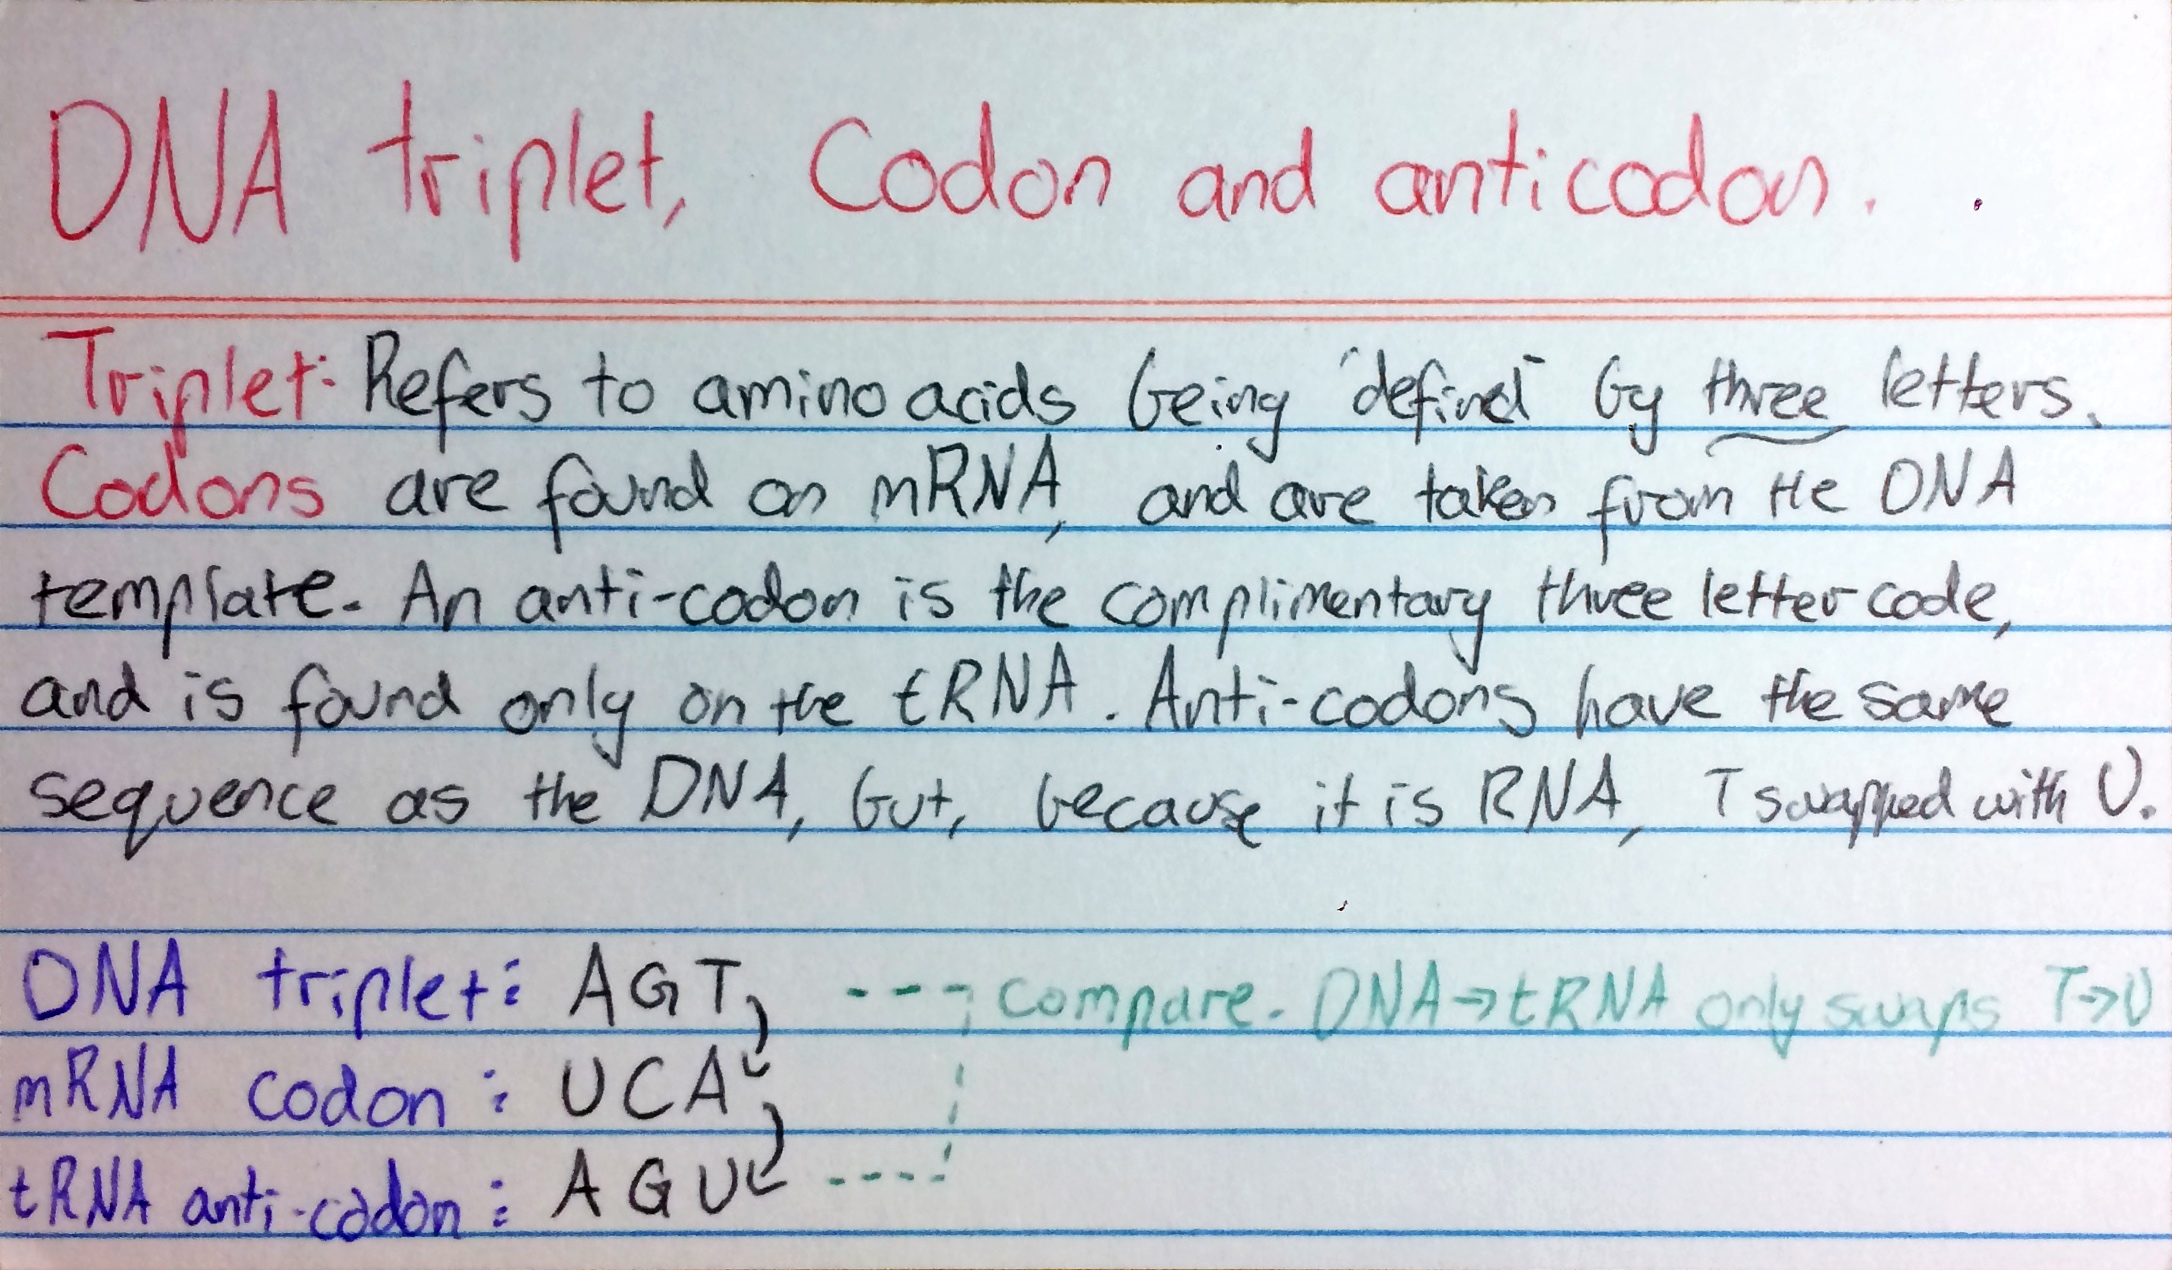 DNA triplet, Codon and anticodon.
Triplet: Refers to amino acids being "defined" by three letters.
Codons are found on mRNA, and are taken from the DNA
template. An anti-codon is the complimentary three letter code,
and is found only on the tRNA. Anti-codons have the same
sequence as the DNA, but, because it is RNA, T swapped with U.
DNA triplet: AGT --- compare. DNA→tRNA only swaps T→U
mRNA codon: UCA
tRNA anti-codon: AGU